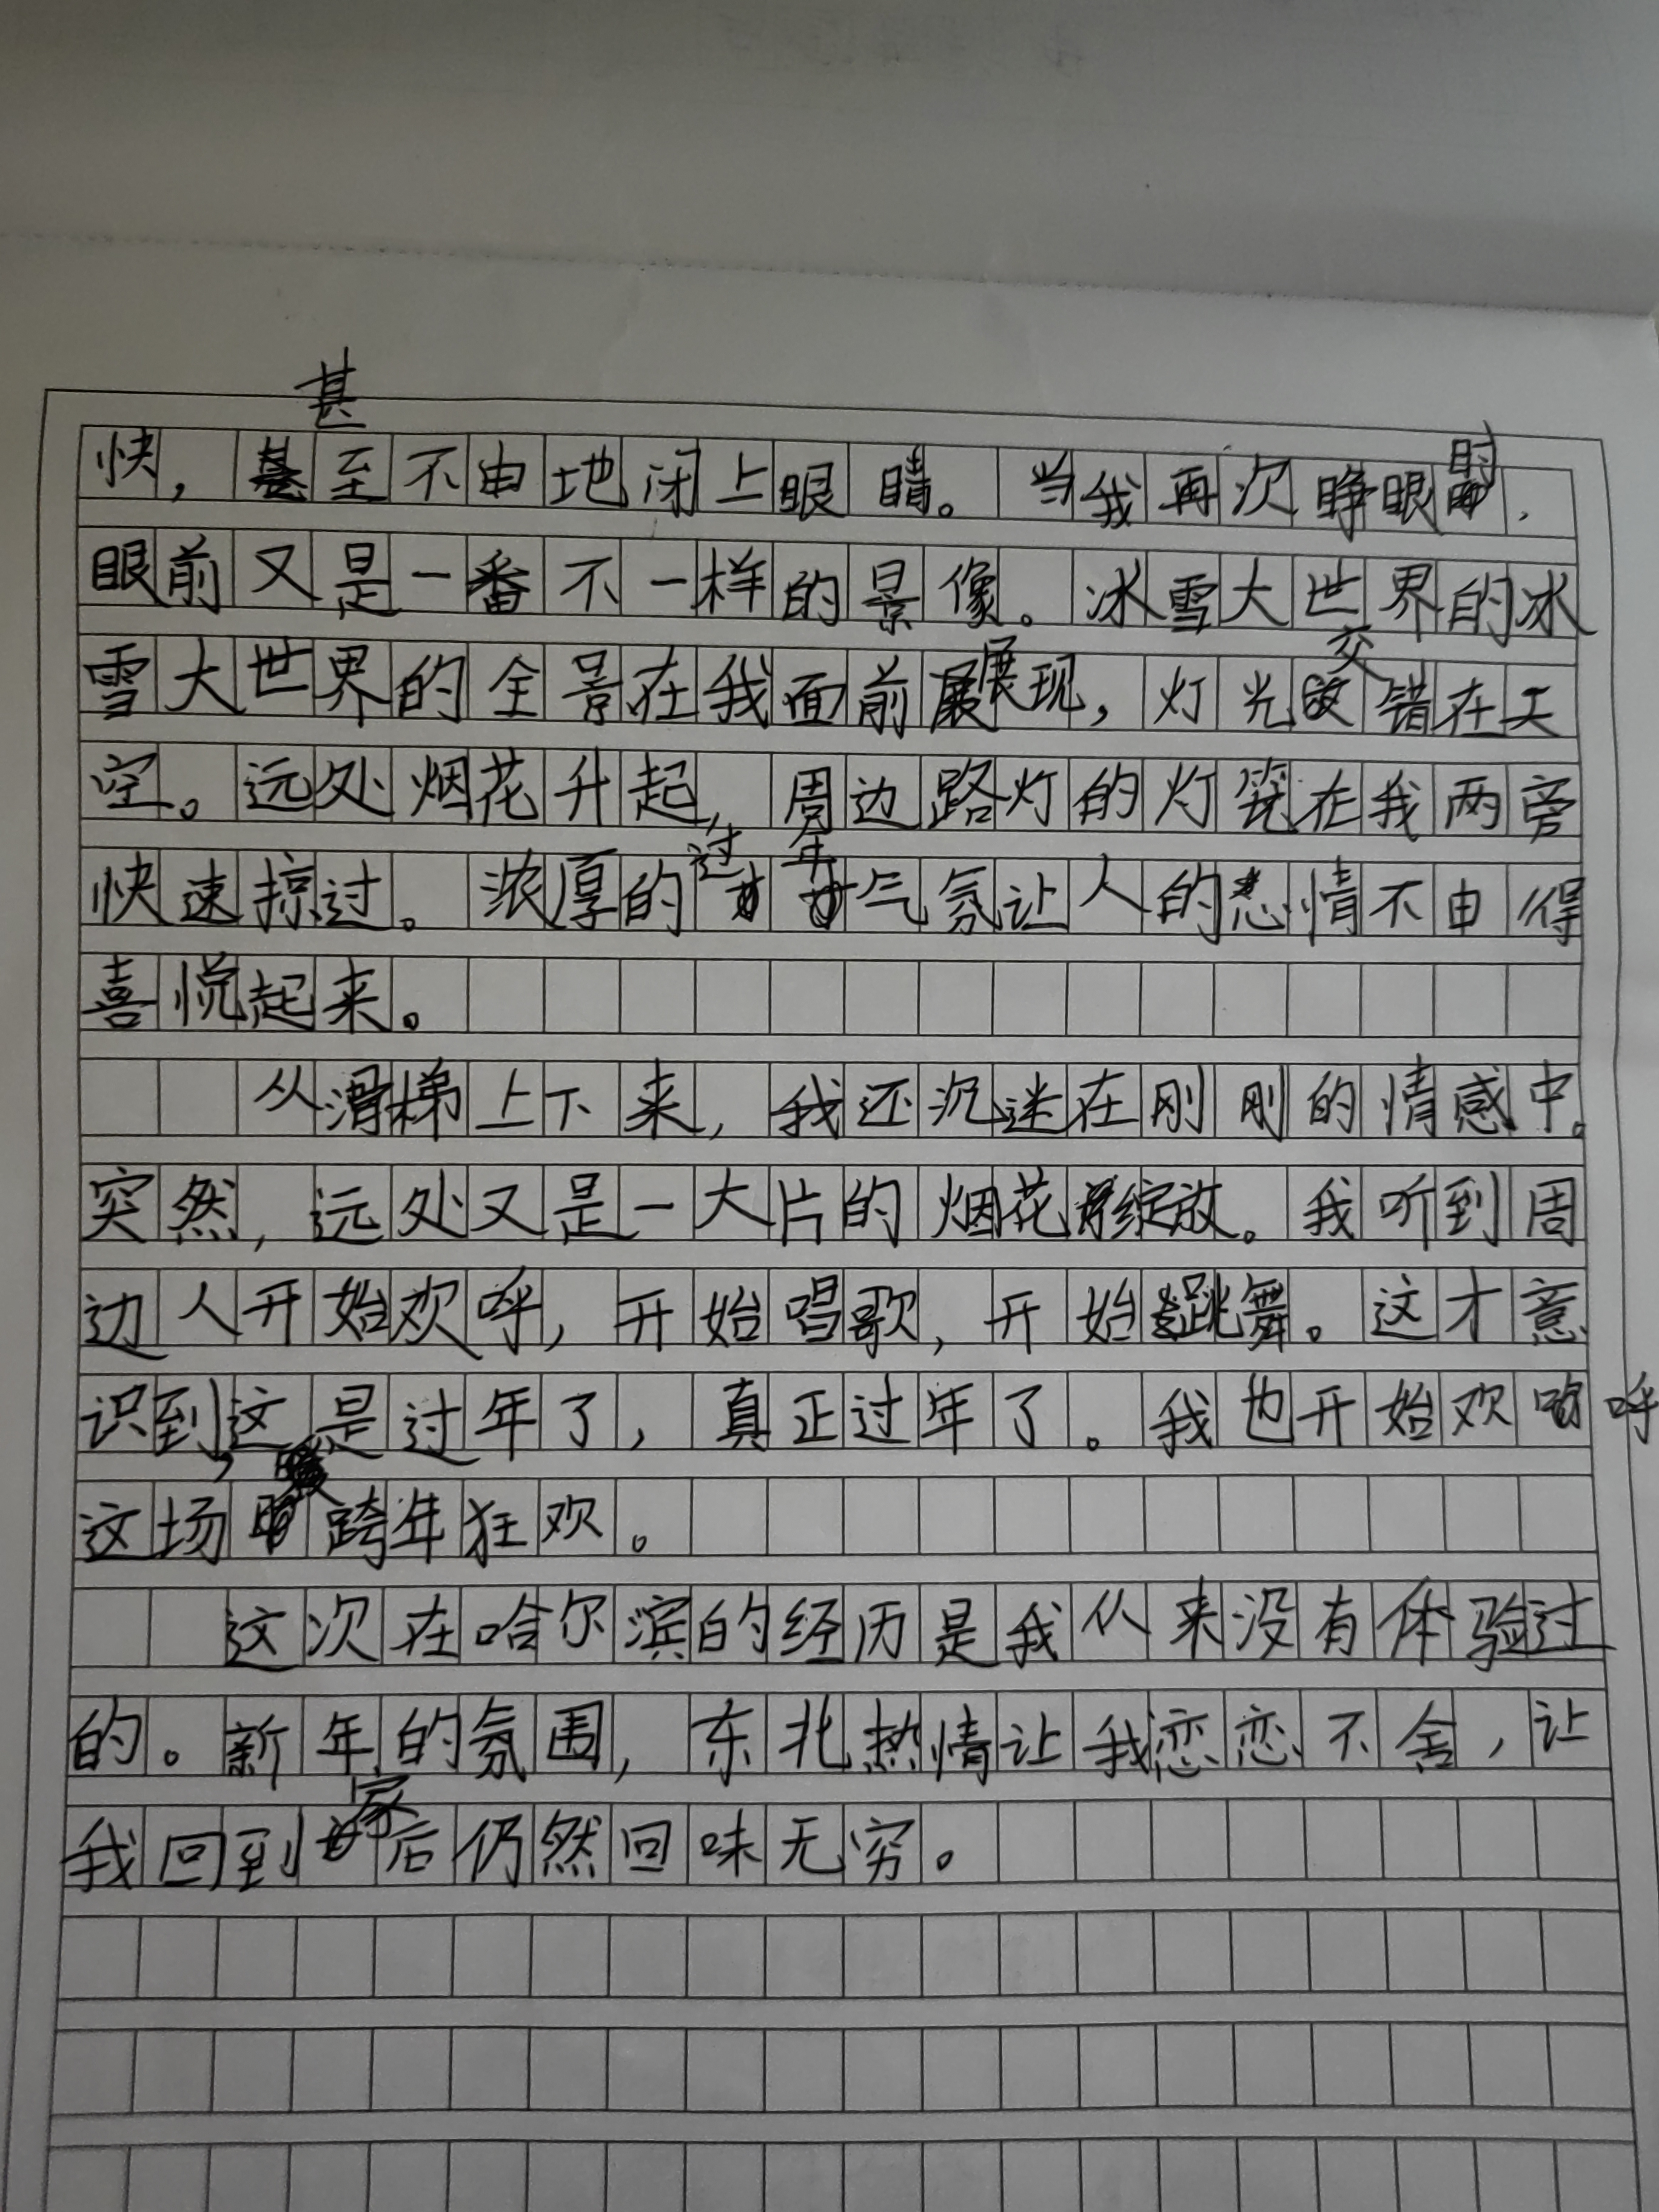 快，甚至不由地闭上眼睛。当我再次睁眼时，
眼前又是一番不一样的景像。冰雪大世界的冰
雪大世界的全景在我面前展现，灯光交错在天
空。远处烟花升起，周边路灯的灯笼在我两旁
快速掠过。浓厚的过年气氛让人的心情不由得
喜悦起来。
从滑梯上下来，我还沉迷在刚刚的情感中。
突然，远处又是一大片的烟花绽放。我听到周
边人开始欢呼，开始唱歌，开始跳舞。这才意
识到，这是过年了，真正过年了。我也开始欢呼
这场跨年狂欢。
这次在哈尔滨的经历是我从来没有体验过
的。新年的氛围，东北热情让我恋恋不舍，让
我回到家后仍然回味无穷。